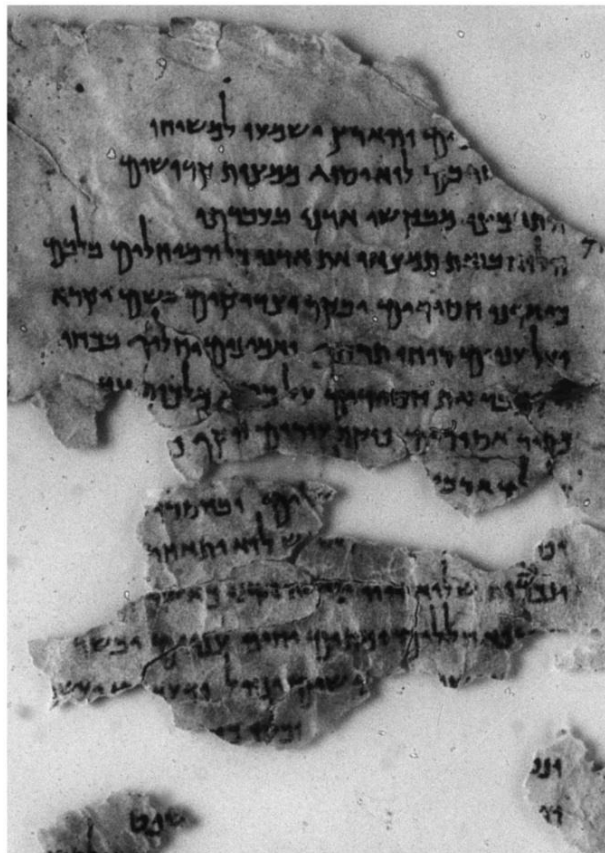 והארץ ישמעו למשיחו
בם לוא יסוג ממצות קדושים
התאמצו מבקשי אדני בעבדתו
הלוא בזאת תמצאו את אדני כל המיחלים בלבם
כי אדני חסידים יבקר וצדיקים בשם יקרא
ועל ענוים רוחו תרחף ואמונים יחליף בכחו
יכבד את חסידים על כסא מלכות עד
מתיר אסורים פוקח עורים זוקף
אדבק
לוא יתאחר
ונכבדות שלוא היו יעשה אדני כאשר
ירפא חללים ומתים יחיה ענוים יבשר
ינהל ורעבים יעשר